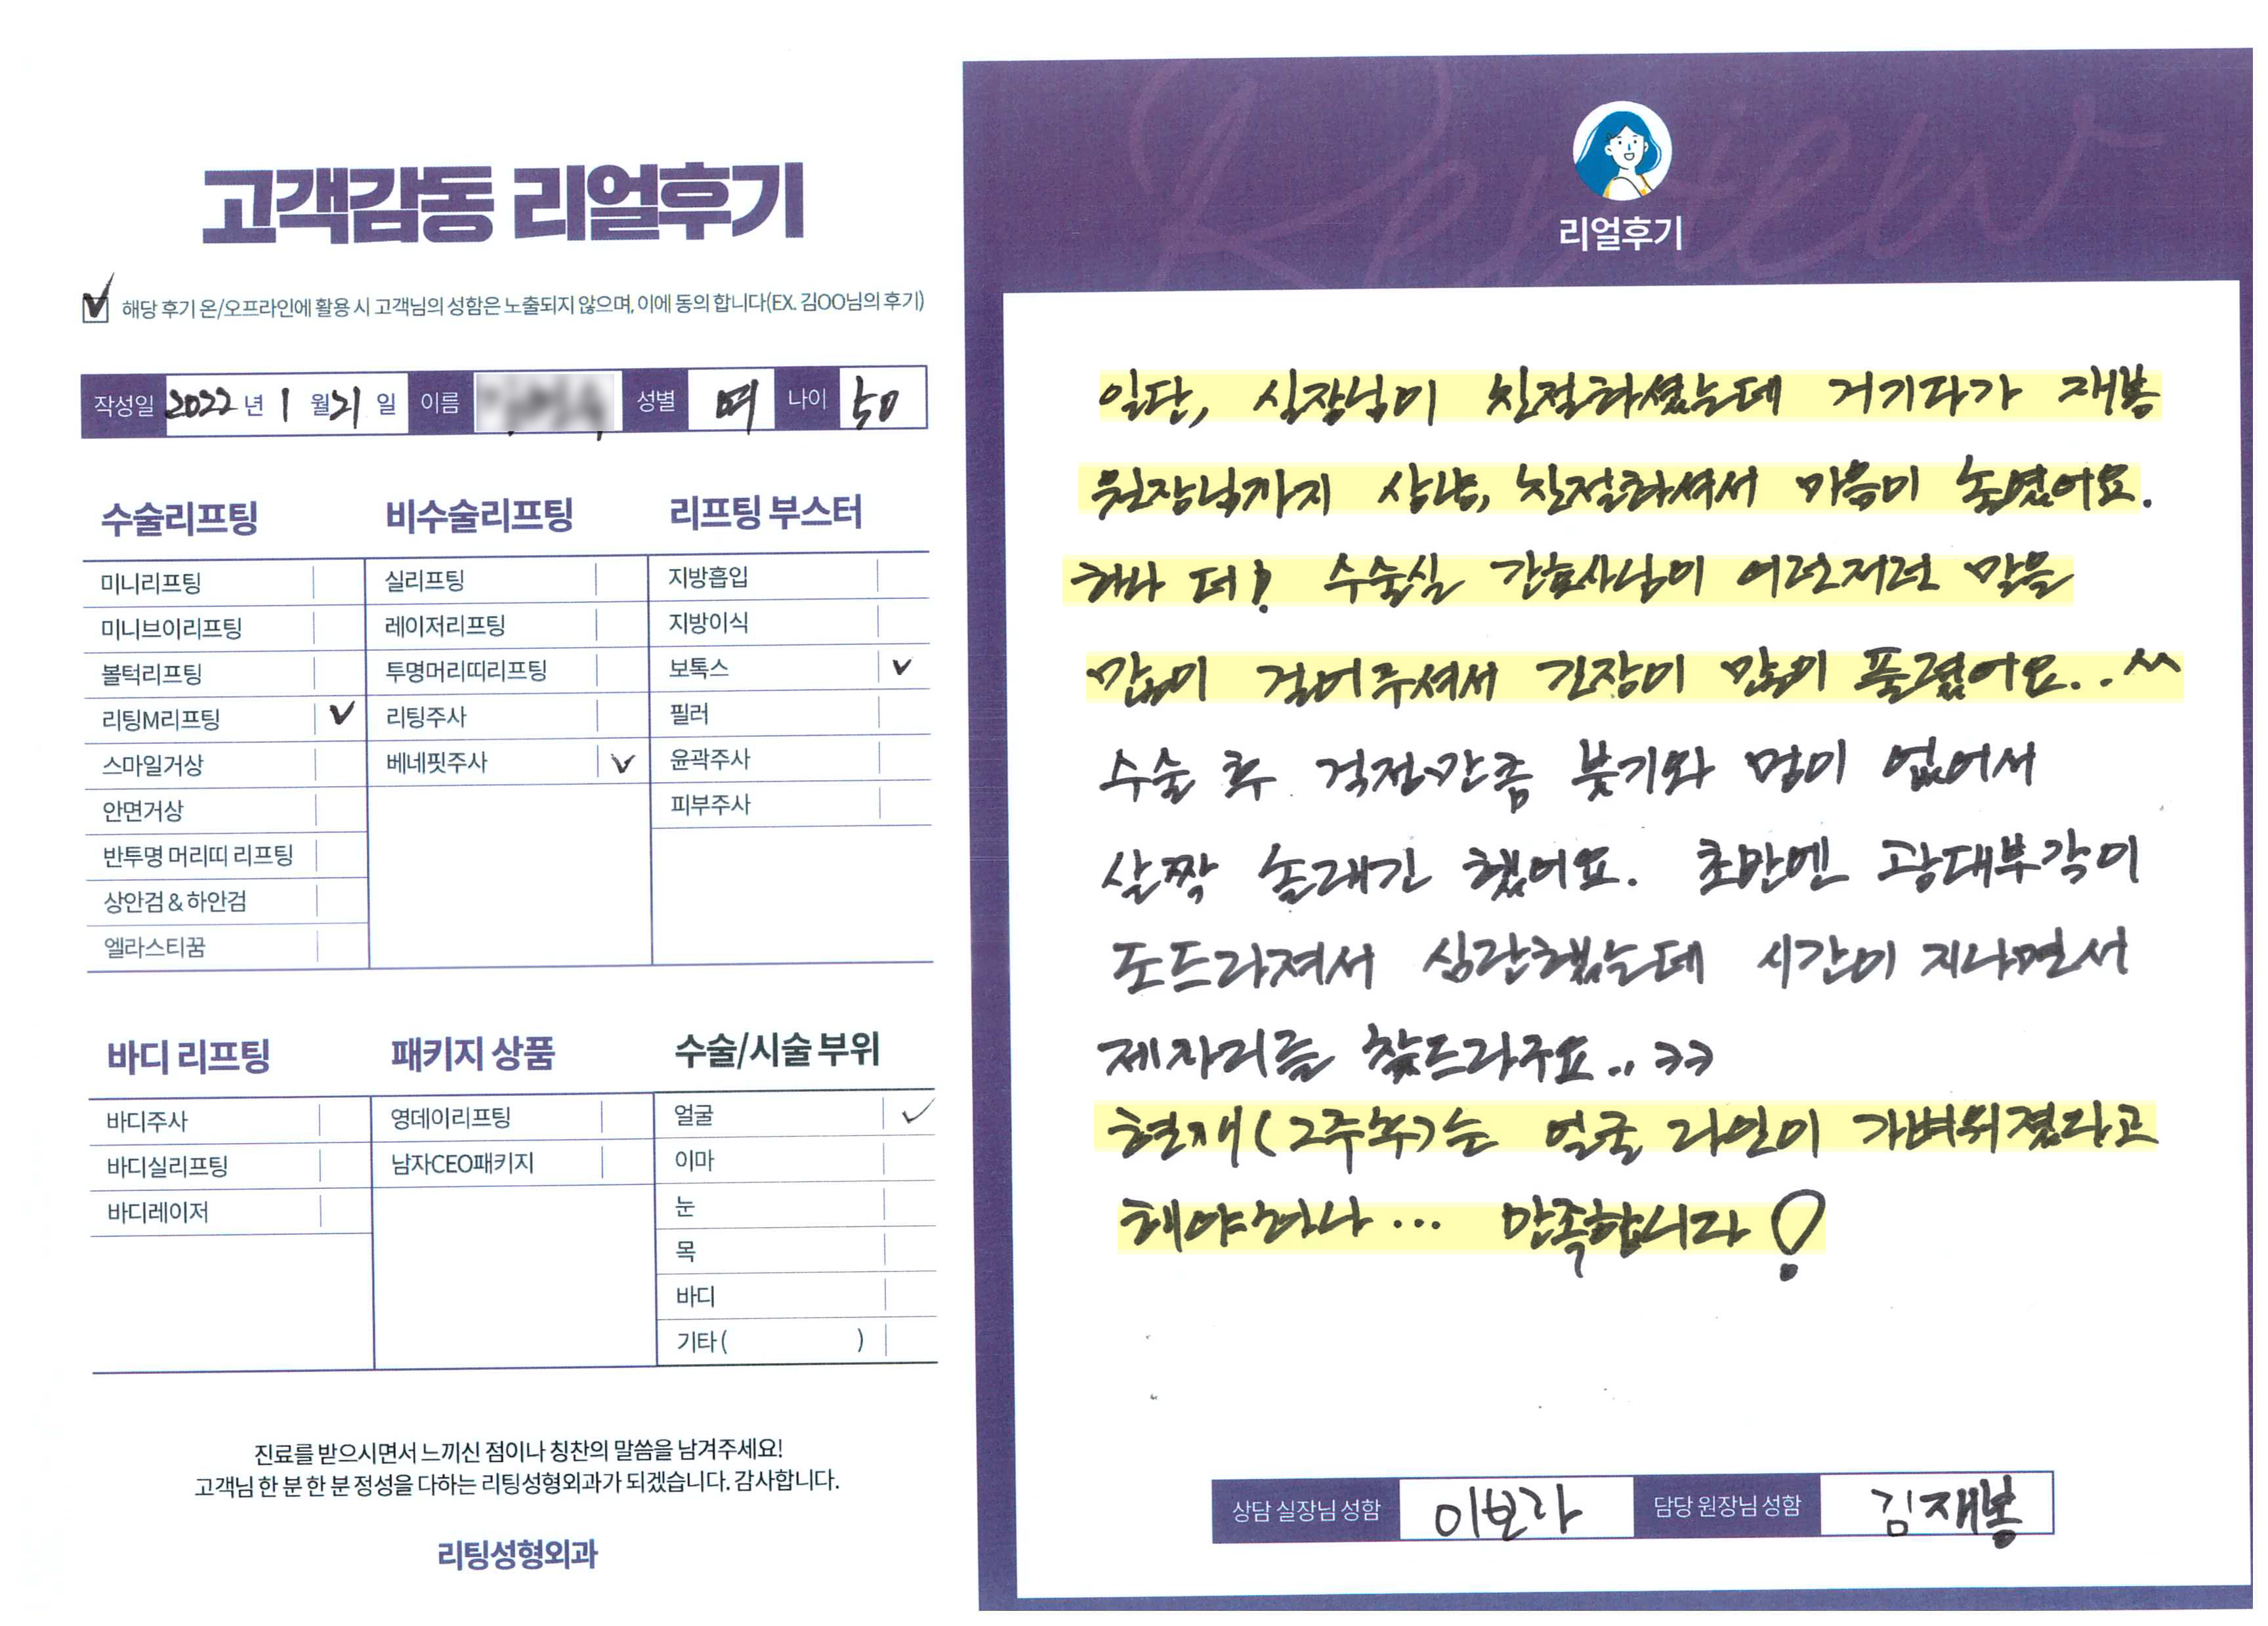 고객감동 리얼후기
해당 후기 온/오프라인에 활용 시 고객님의 성함은 노출되지 않으며, 이에 동의 합니다(EX. 김OO님의 후기)
작성일 2022 년 1 월 21 일 이름 성별 여 나이 50
수술리프팅
미니리프팅
미니브이리프팅
볼턱리프팅
리팅M리프팅
스마일거상
안면거상
반투명 머리띠 리프팅
상안검 & 하안검
엘라스티꿈
비수술리프팅
실리프팅
레이저리프팅
투명머리띠리프팅
리팅주사
베네핏주사
리프팅 부스터
지방흡입
지방이식
보톡스
필러
윤곽주사
피부주사
바디 리프팅
바디주사
바디실리프팅
바디레이저
패키지 상품
영데이리프팅
남자CEO패키지
수술/시술 부위
얼굴
이마
눈
목
바디
기타 ( )
진료를 받으시면서 느끼신 점이나 칭찬의 말씀을 남겨주세요!
고객님 한 분 한 분 정성을 다하는 리팅성형외과가 되겠습니다. 감사합니다.
리팅성형외과
Review
리얼후기
일단, 실장님이 친절하셨는데 거기다가 재봉
원장님까지 상냥, 친절하셔서 마음이 놓였어요.
하나 더! 수술실 간호사님이 이런저런 말을
많이 걸어주셔서 긴장이 많이 풀렸어요.. ^^
수술 후 걱정만큼 붓기와 멍이 없어서
살짝 놀래긴 했어요. 초반엔 광대부각이
도드라져서 심란했는데 시간이 지나면서
제자리를 찾드라구요.. ㅋㅋ
현재(2주쯤)는 얼굴 라인이 가벼워졌다고
해야하나... 만족합니다!
상담 실장님 성함 이보라 담당 원장님 성함 김재봉